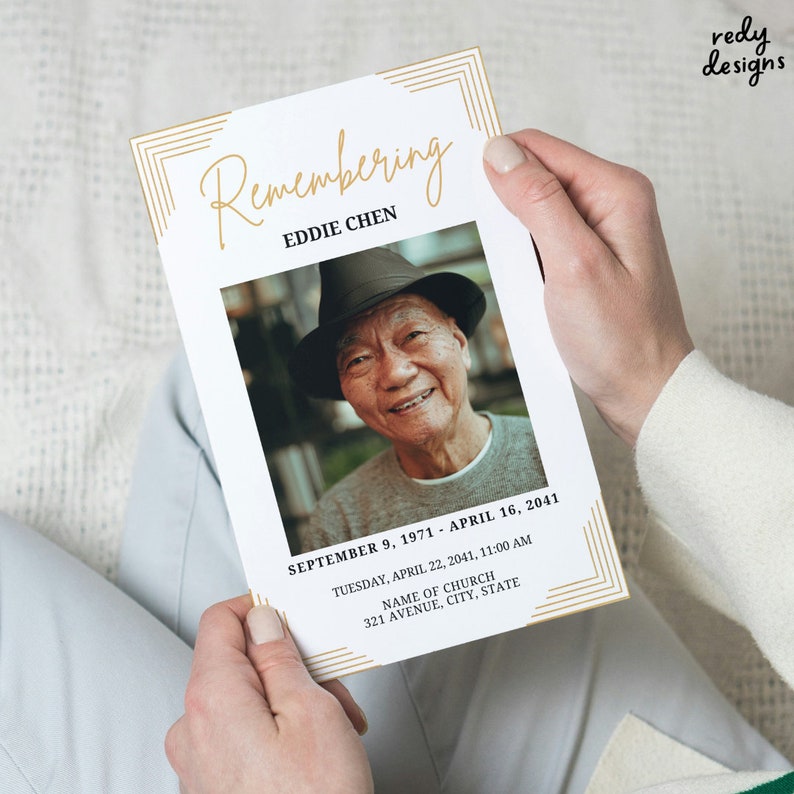 redy
designs
Remembering
EDDIE CHEN
SEPTEMBER 9, 1971 - APRIL 16, 2041
TUESDAY, APRIL 22, 2041, 11:00 AM
NAME OF CHURCH
321 AVENUE, CITY, STATE